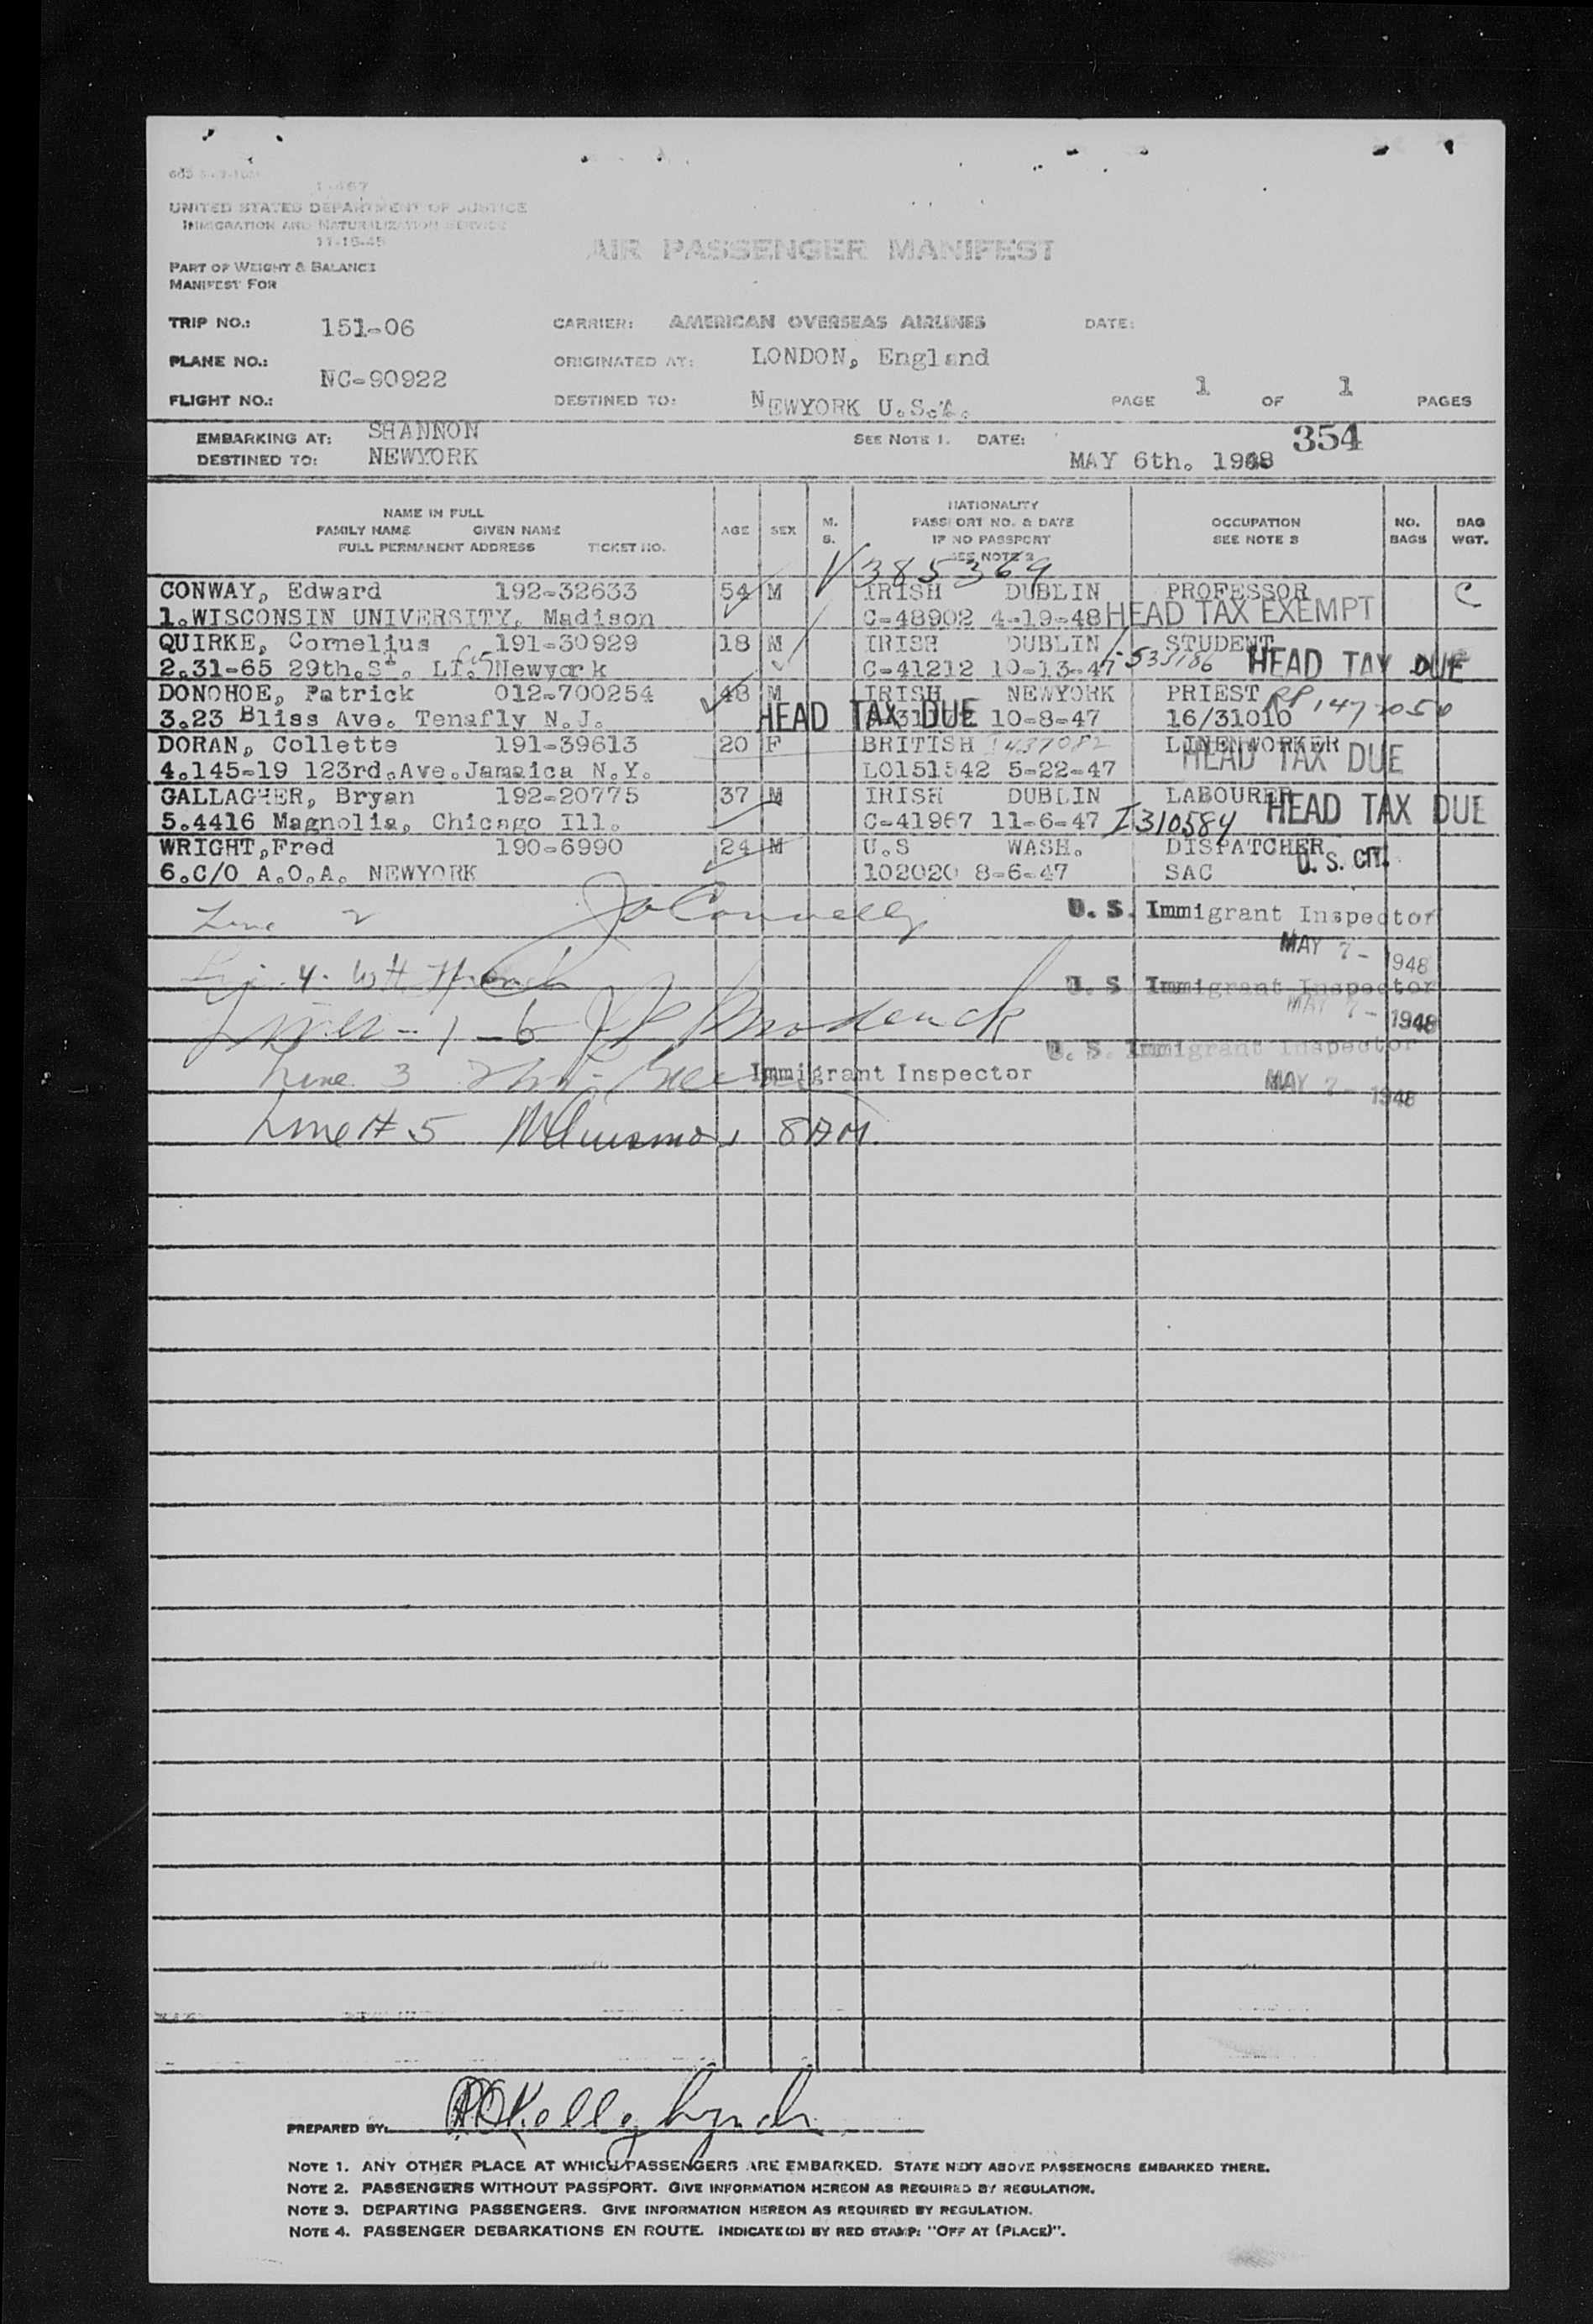 UNITED STATES DEPARTMENT OF JUSTICE
IMMIGRATION AND NATURALIZATION SERVICE
11-15-45
AIR PASSENGER MANIFEST
PART OF WEIGHT & BALANCE
MANIFEST FOR
TRIP NO.: 151-06 CARRIER: AMERICAN OVERSEAS AIRLINES DATE:
PLANE NO.: NC-90922 ORIGINATED AT: LONDON, England
FLIGHT NO.: DESTINED TO: NEWYORK U.S.A. PAGE 1 OF 1 PAGES
EMBARKING AT: SHANNON SEE NOTE 1. DATE: 354
DESTINED TO: NEWYORK MAY 6th. 1948
NAME IN FULL
FAMILY NAME GIVEN NAME
FULL PERMANENT ADDRESS TICKET NO.
AGE SEX M. S.
NATIONALITY
PASSPORT NO. & DATE
IF NO PASSPORT
SEE NOTE 2
OCCUPATION
SEE NOTE 3
NO. BAGS
BAG WGT.
V385369
CONWAY, Edward 192-32633 54 M IRISH DUBLIN PROFESSOR C
1.WISCONSIN UNIVERSITY, Madison C-48902 4-19-48 HEAD TAX EXEMPT
QUIRKE, Cornelius 191-30929 18 M IRISH DUBLIN STUDENT
2.31-65 29th.St. LI. City Newyork C-41212 10-13-47 533186 HEAD TAX DUE
DONOHOE, Patrick 012-700254 48 M IRISH NEWYORK PRIEST RP 1472050
3.23 Bliss Ave. Tenafly N.J. HEAD TAX DUE 10-8-47 16/31010
DORAN, Collette 191-39613 20 F BRITISH 1437082 LINENWORKER
4.145-19 123rd.Ave.Jamaica N.Y. LO151542 5-22-47 HEAD TAX DUE
GALLAGHER, Bryan 192-20775 37 M IRISH DUBLIN LABOURER
5.4416 Magnolia, Chicago Ill. C-41967 11-6-47 I310584 HEAD TAX DUE
WRIGHT,Fred 190-6990 24 M U.S WASH. DISPATCHER
6.C/O A.O.A. NEWYORK 102020 8-6-47 SAC U. S. CIT.
Line 2 JoConnelly U. S. Immigrant Inspector
MAY 7- 1948
4. U. S. Immigrant Inspector
MAY 7- 1948
Lines - 1 - 6 U. S. Immigrant Inspector
Line 3 Immigrant Inspector MAY 7- 1948
Line # 5
PREPARED BY:
NOTE 1. ANY OTHER PLACE AT WHICH PASSENGERS ARE EMBARKED. STATE NEXT ABOVE PASSENGERS EMBARKED THERE.
NOTE 2. PASSENGERS WITHOUT PASSPORT. GIVE INFORMATION HEREON AS REQUIRED BY REGULATION.
NOTE 3. DEPARTING PASSENGERS. GIVE INFORMATION HEREON AS REQUIRED BY REGULATION.
NOTE 4. PASSENGER DEBARKATIONS EN ROUTE. INDICATE(D) BY RED STAMP: "OFF AT (PLACE)".